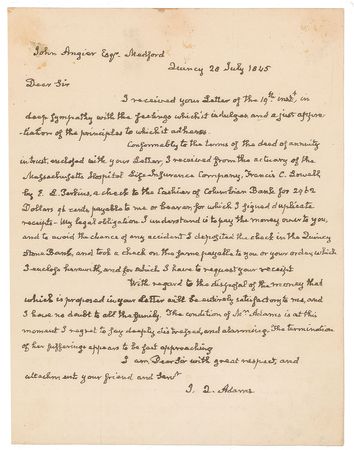 John Angier Esqr. Medford
Quincy 28 July 1845
Dear Sir
I received your Letter of the 19th inst, in
deep sympathy with the feelings which it indulges, and a just appre-
ciation of the principles to which it adheres.
Conformably to the terms of the deed of annuity
in trust, enclosed with your Letter, I received from the actuary of the
Massachusetts Hospital Life Insurance Company, Francis C. Lowell
by Perkins, a check to the Cashier of Columbian Bank for
Dollars cents, payable to me or bearer, for which I signed duplicate
receipts. My legal obligation I understand is to pay the money over to you,
and to avoid the chance of any accident I deposited the check in the Quincy
Stone Bank, and took a check on the same payable to you or your order, which
I enclose herewith, and for which I have to request your receipt
With regard to the disposal of the money that
which is proposed in your Letter will be entirely satisfactory to me, and
I have no doubt to all the family. The condition of Mrs. Adams is at this
moment I regret to say deeply distressed, and alarming. The termination
of her sufferings appears to be fast approaching
I am, Dear Sir with great respect, and
attachment your friend and Servt
J. Q. Adams